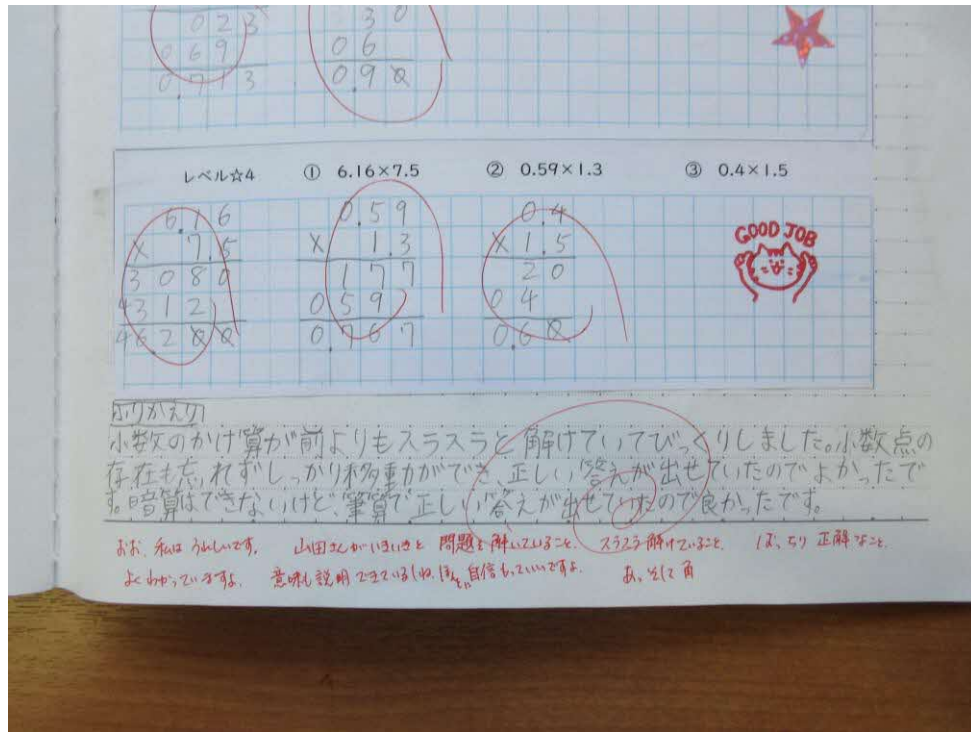 023
069
0.713
30
06
0.90
レベル☆4 ① 6.16×7.5 ② 0.59×1.3 ③ 0.4×1.5
6.16
×7.5
3080
4312
46.200
0.59
×1.3
177
059
0.767
0.4
×1.5
20
04
0.60
GOOD JOB
ふりかえり
小数のかけ算が前よりもスラスラと解けていてびっくりしました。小数点の
存在も忘れずしっかり移動ができ、正しい答えが出せていたのでよかったで
す。暗算はできないけど、筆算で正しい答えが出せていたので良かったです。
おお、私はうれしいです。 山田さんがいきいきと問題を解いていること、スラスラ解けていること、ばっちり正解なこと、
よくわかっていますよ。 意味も説明できているしね。 自信もっていいですよ。 あ、そして